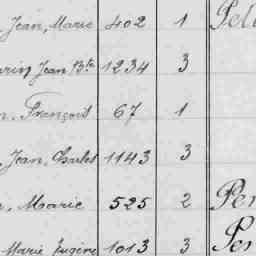 Jean, Marie 402 1 Pel
Jean Bte 1234 3
François 67 1
Jean, Charles 1143 3
Marie 525 2 Per
Marie Eugène 1013 3 Per